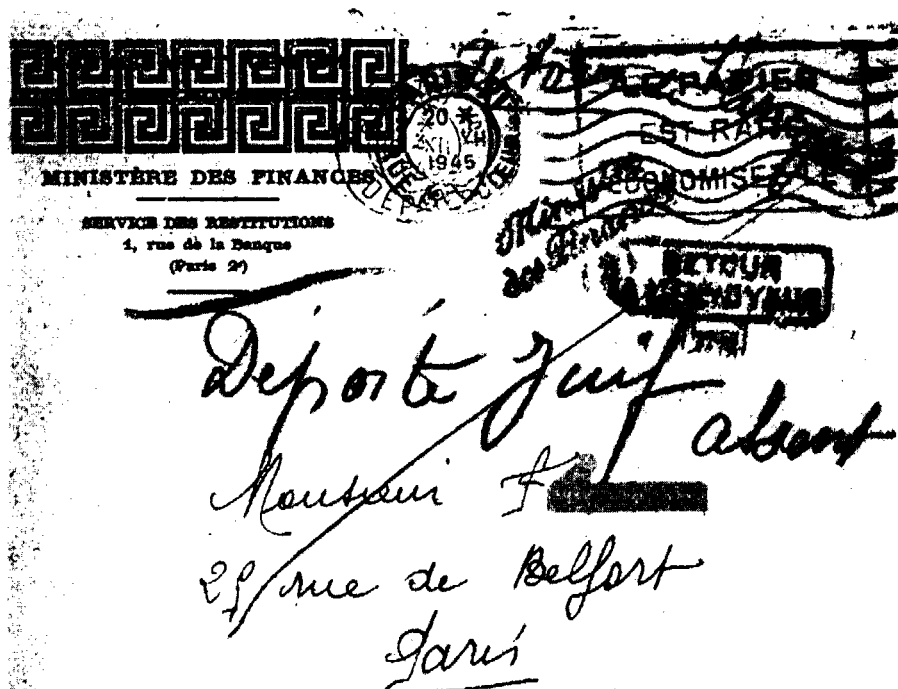 MINISTÈRE DES FINANCES
SERVICE DES RESTITUTIONS
1, rue de la Banque
(Paris 2e)
20
XII
1945
LE PAPIER
EST RARE
ECONOMISEZ LE
Ministère
des Finances
RETOUR
A L'ENVOYEUR
Déporté Juif
absent
Monsieur F
29 rue de Belfort
Paris